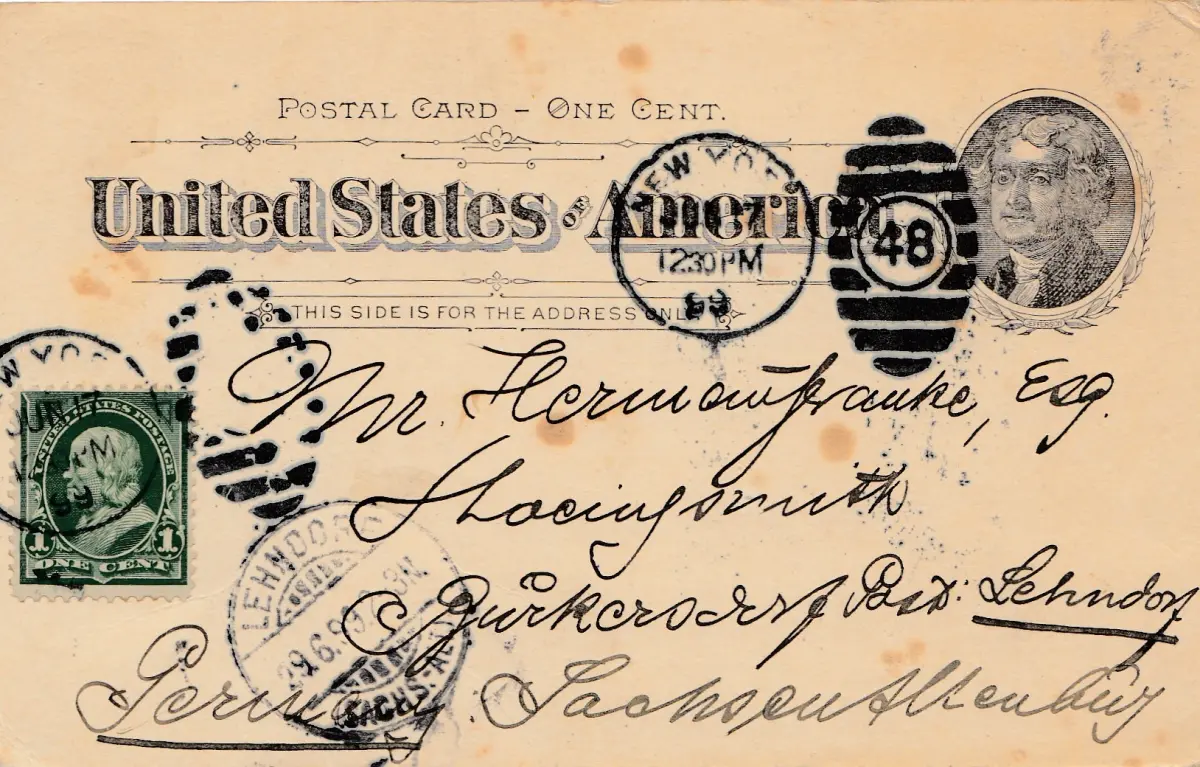 POSTAL CARD – ONE CENT.
United States OF America
THIS SIDE IS FOR THE ADDRESS ONLY
NEW YO
12 30 PM
99
48
JEFFERSON
Mr. Hermann Franke, Esq.
UNITED STATES POSTAGE
1 1
ONE CENT
W YO
JUN 17
PM
99
LEHNDORF
29.6.99 2-3N.
SACHS.-AL
Post: Lehndorf
Germany. Sachsen Altenburg